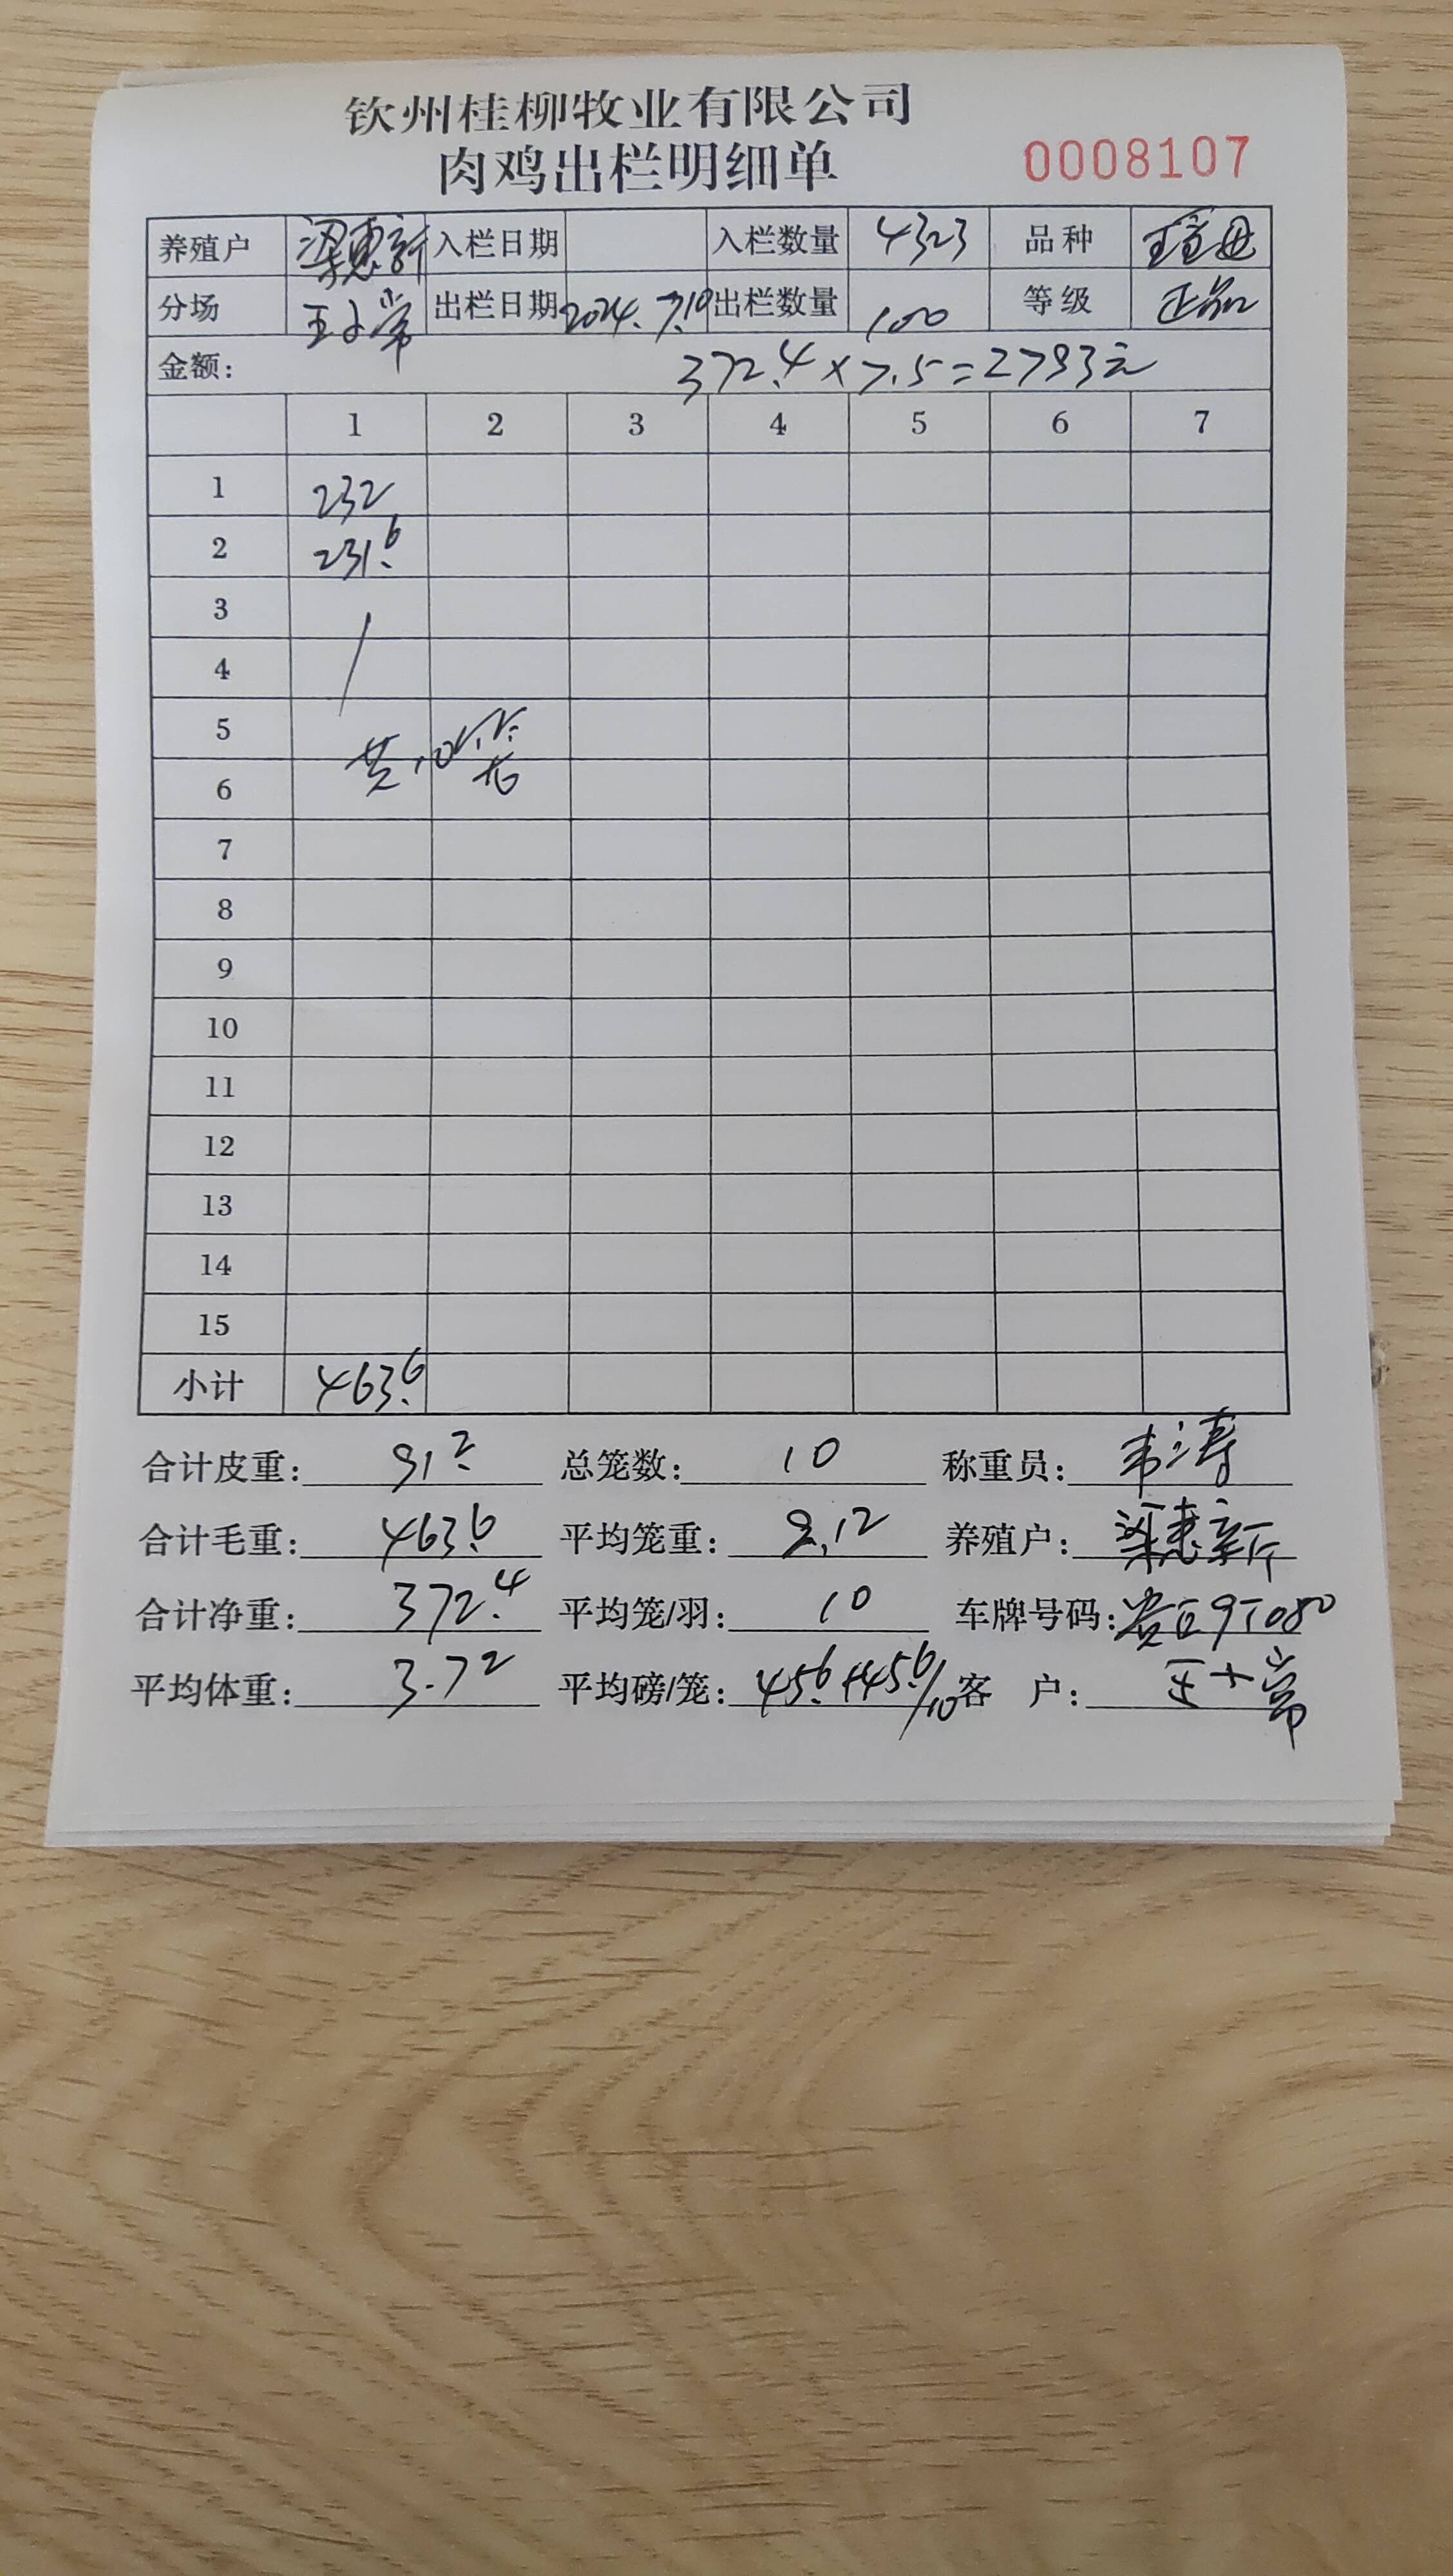 钦州桂柳牧业有限公司
肉鸡出栏明细单 0008107
养殖户 梁惠新 入栏日期 入栏数量 4323 品种
分场 出栏日期 2024.7.19 出栏数量 100 等级 正品
金额: 372.4×7.5=2793元
1 2 3 4 5 6 7
1 232
2 231.6
3
4
5
6 共10
7
8
9
10
11
12
13
14
15
小计 463.6
合计皮重: 91.2 总笼数: 10 称重员: 韦涛
合计毛重: 463.6 平均笼重: 9.12 养殖户: 梁惠新
合计净重: 372.4 平均笼/羽: 10 车牌号码:
平均体重: 3.72 平均磅/笼: 45.6+45.6/10 客 户: